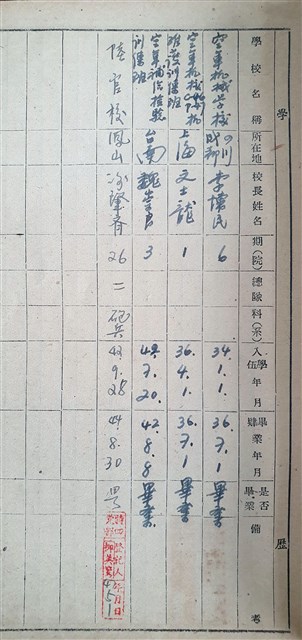 學
歷
學校名稱 所在地 校長姓名 期(院) 總隊 科(系) 入學伍年月 畢肄業年月 是否畢業 備考
空軍机械学校 四川成都 李懷民 6 34.1.1. 36.3.1 畢業
空軍机械學校 訓練班 上海 文士龍 1 36.4.1. 36.7.1 畢業
空軍補给 訓練班 台南 魏崇良 3 42.7.20. 42.8.8 畢業
陸官校 鳳山 謝肇齊 26 二 砲兵 43.9.28 44.8.30 畢